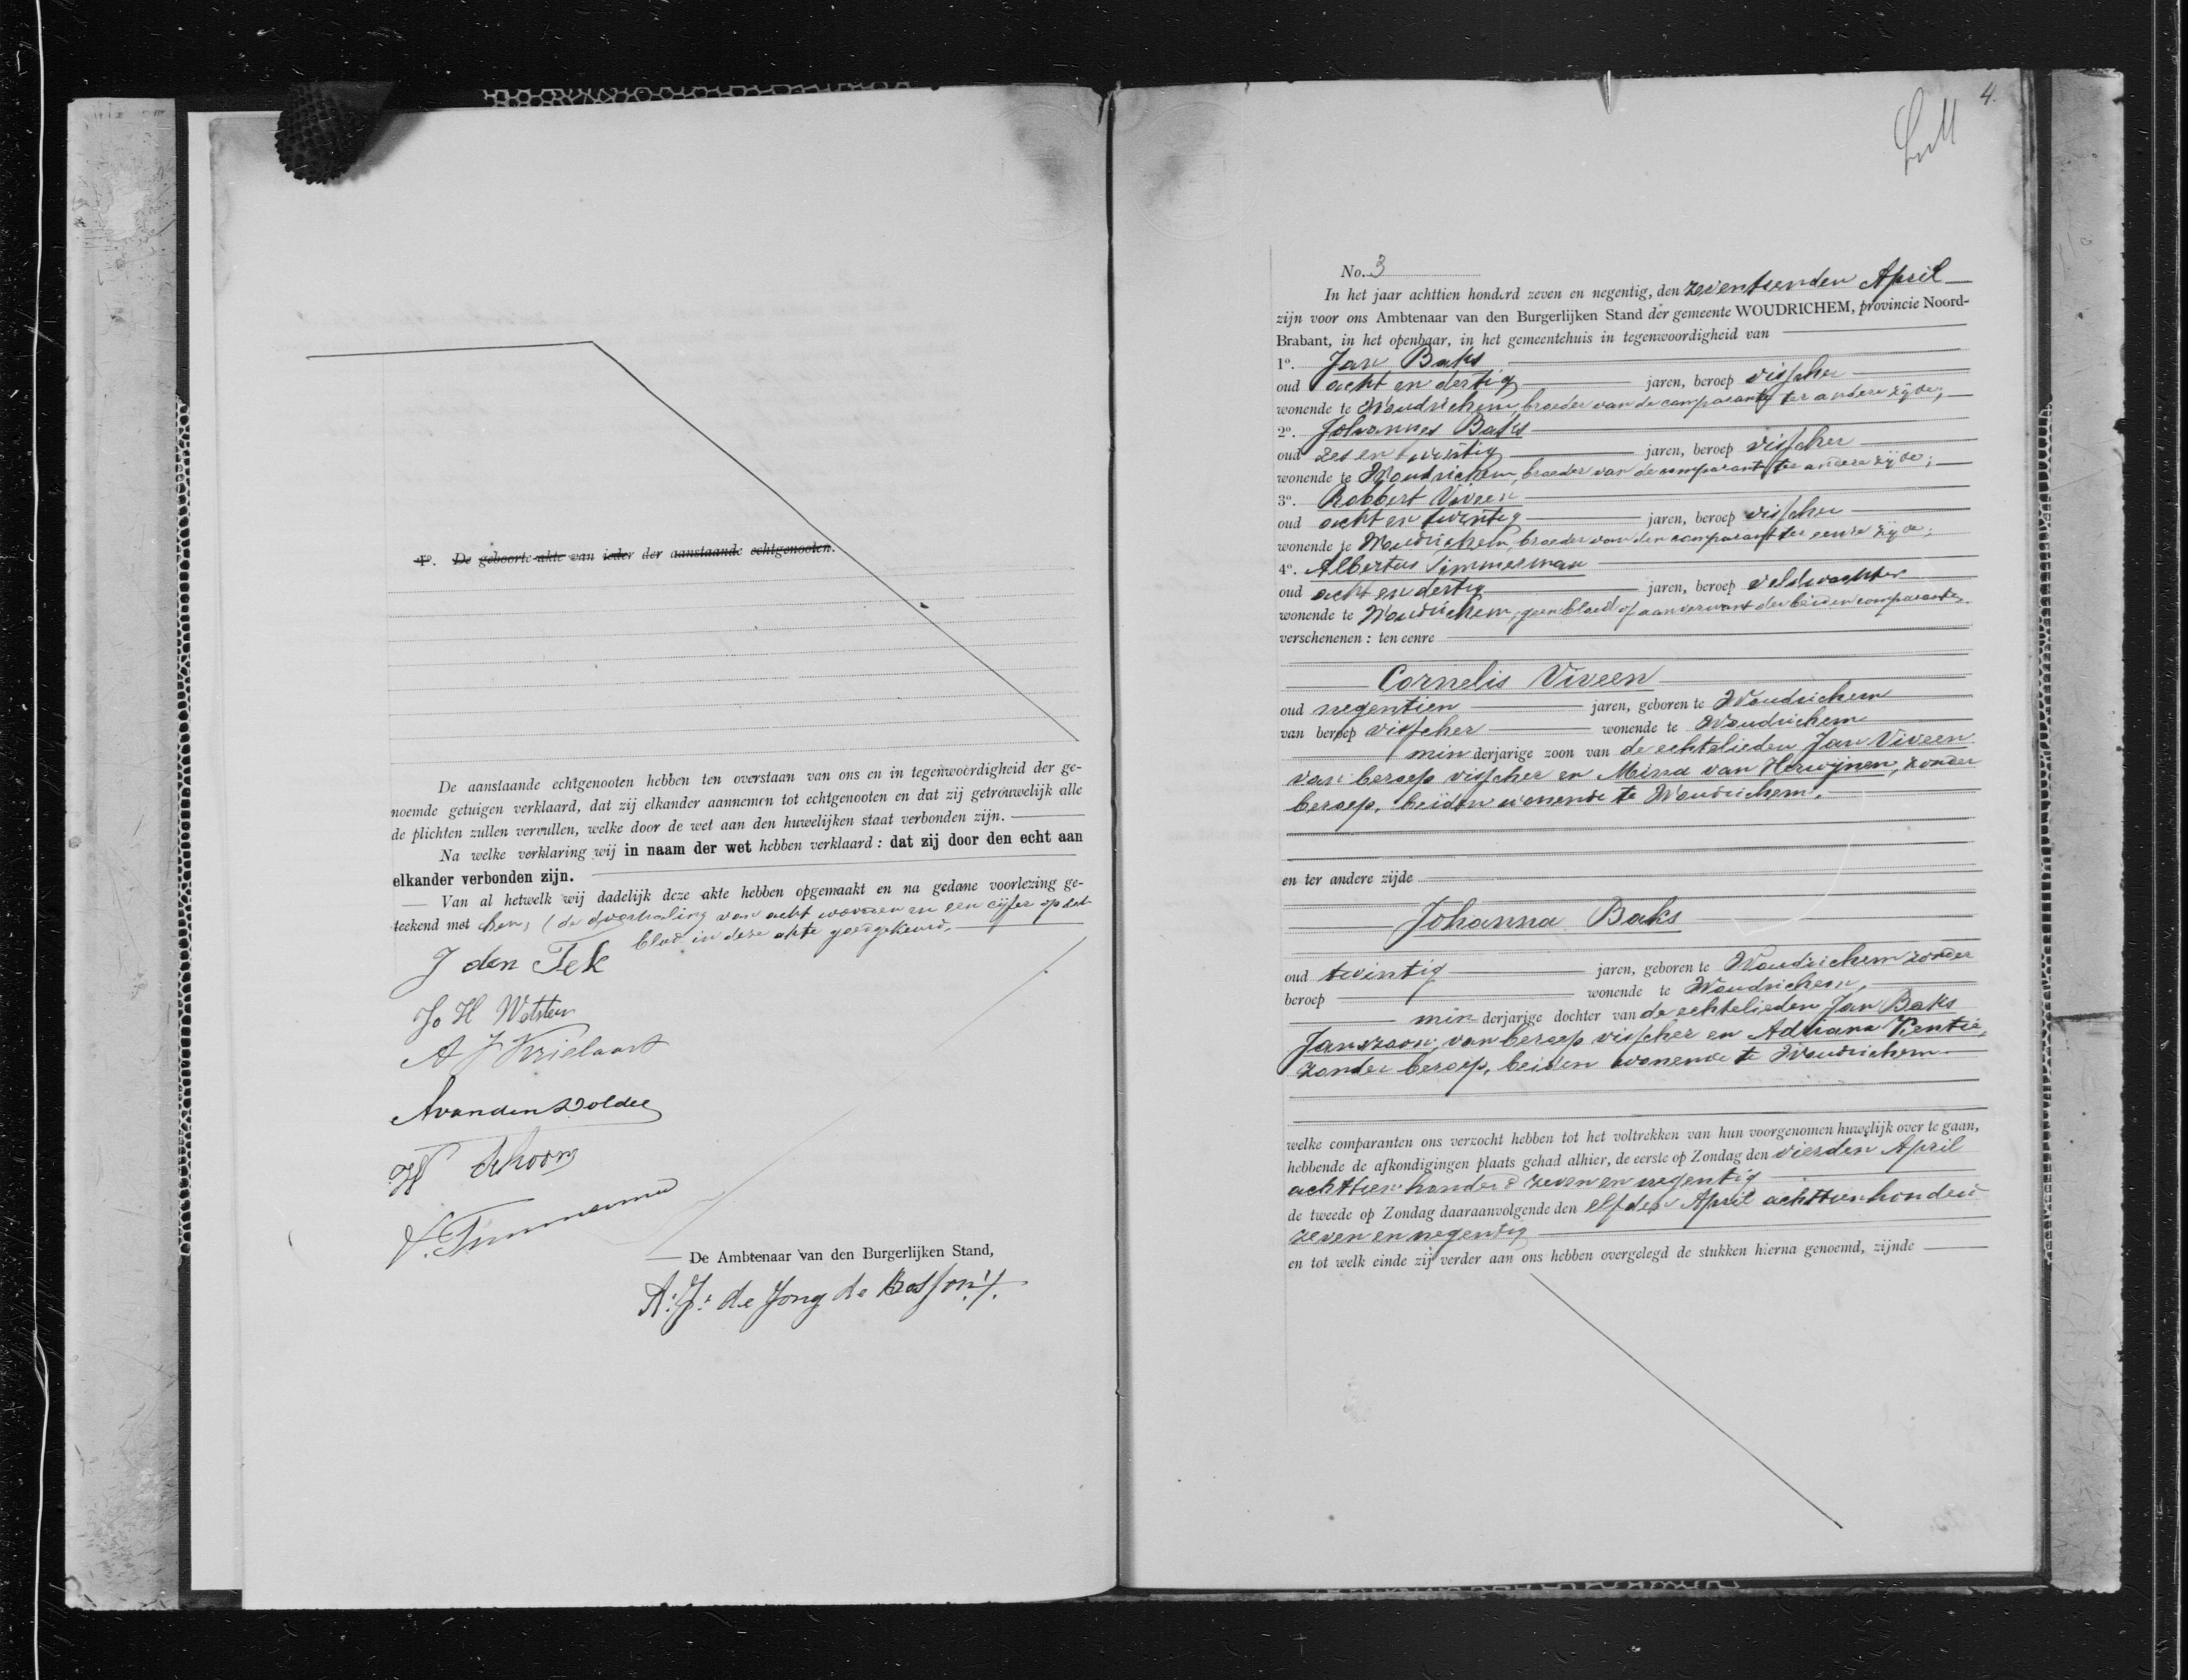 1o. De geboorte-akte van ieder der aanstaande echtgenooten.
De aanstaande echtgenooten hebben ten overstaan van ons en in tegenwoordigheid der ge-
noemde getuigen verklaard, dat zij elkander aannemen tot echtgenooten en dat zij getrouwelijk alle
de plichten zullen vervullen, welke door de wet aan den huwelijken staat verbonden zijn.
Na welke verklaring wij in naam der wet hebben verklaard: dat zij door den echt aan
elkander verbonden zijn.
Van al hetwelk wij dadelijk deze akte hebben opgemaakt en na gedane voorlezing ge-
teekend met hen; (de doorhaling van acht woorden en een cijfer op dit
blad in deze akte goedgekeurd.
J den Tek
A J Krielaart
A van den Dolder
De Ambtenaar van den Burgerlijken Stand,
A. J. de Jong de Bosson
4.
No. 3
In het jaar achttien honderd zeven en negentig, den zeventienden April
zijn voor ons Ambtenaar van den Burgerlijken Stand der gemeente WOUDRICHEM, provincie Noord-
Brabant, in het openbaar, in het gemeentehuis in tegenwoordigheid van
1o. Jan Baks
oud acht en dertig jaren, beroep visscher
wonende te Woudrichem, broeder van de comparante ter andere zijde;
2o. Johannes Baks
oud zes en twintig jaren, beroep visscher
wonende te Woudrichem, broeder van de comparante ter andere zijde;
3o. Robbert Viveen
oud acht en twintig jaren, beroep visscher
wonende te Woudrichem, broeder van den comparant ter eenre zijde;
4o. Albertus Timmerman
oud acht en dertig jaren, beroep veldwachter
wonende te Woudrichem, geen bloed of aanverwant der beiden comparanten.
verschenenen: ten eenre
Cornelis Viveen
oud negentien jaren, geboren te Woudrichem
van beroep visscher wonende te Woudrichem
minderjarige zoon van de echtelieden Jan Viveen
van beroep visscher en Mina van Herwijnen, zonder
beroep, beiden wonende te Woudrichem.
en ter andere zijde
Johanna Baks
oud twintig jaren, geboren te Woudrichem zonder
beroep wonende te Woudrichem,
minderjarige dochter van de echtelieden Jan Baks
Janszoon, van beroep visscher en Adriana Kentie,
zonder beroep, beiden wonende te Woudrichem
welke comparanten ons verzocht hebben tot het voltrekken van hun voorgenomen huwelijk over te gaan,
hebbende de afkondigingen plaats gehad alhier, de eerste op Zondag den vierden April
achttien honderd zeven en negentig
de tweede op Zondag daaraanvolgende den elfden April achttienhonderd
zeven en negentig
en tot welk einde zij verder aan ons hebben overgelegd de stukken hierna genoemd, zijnde